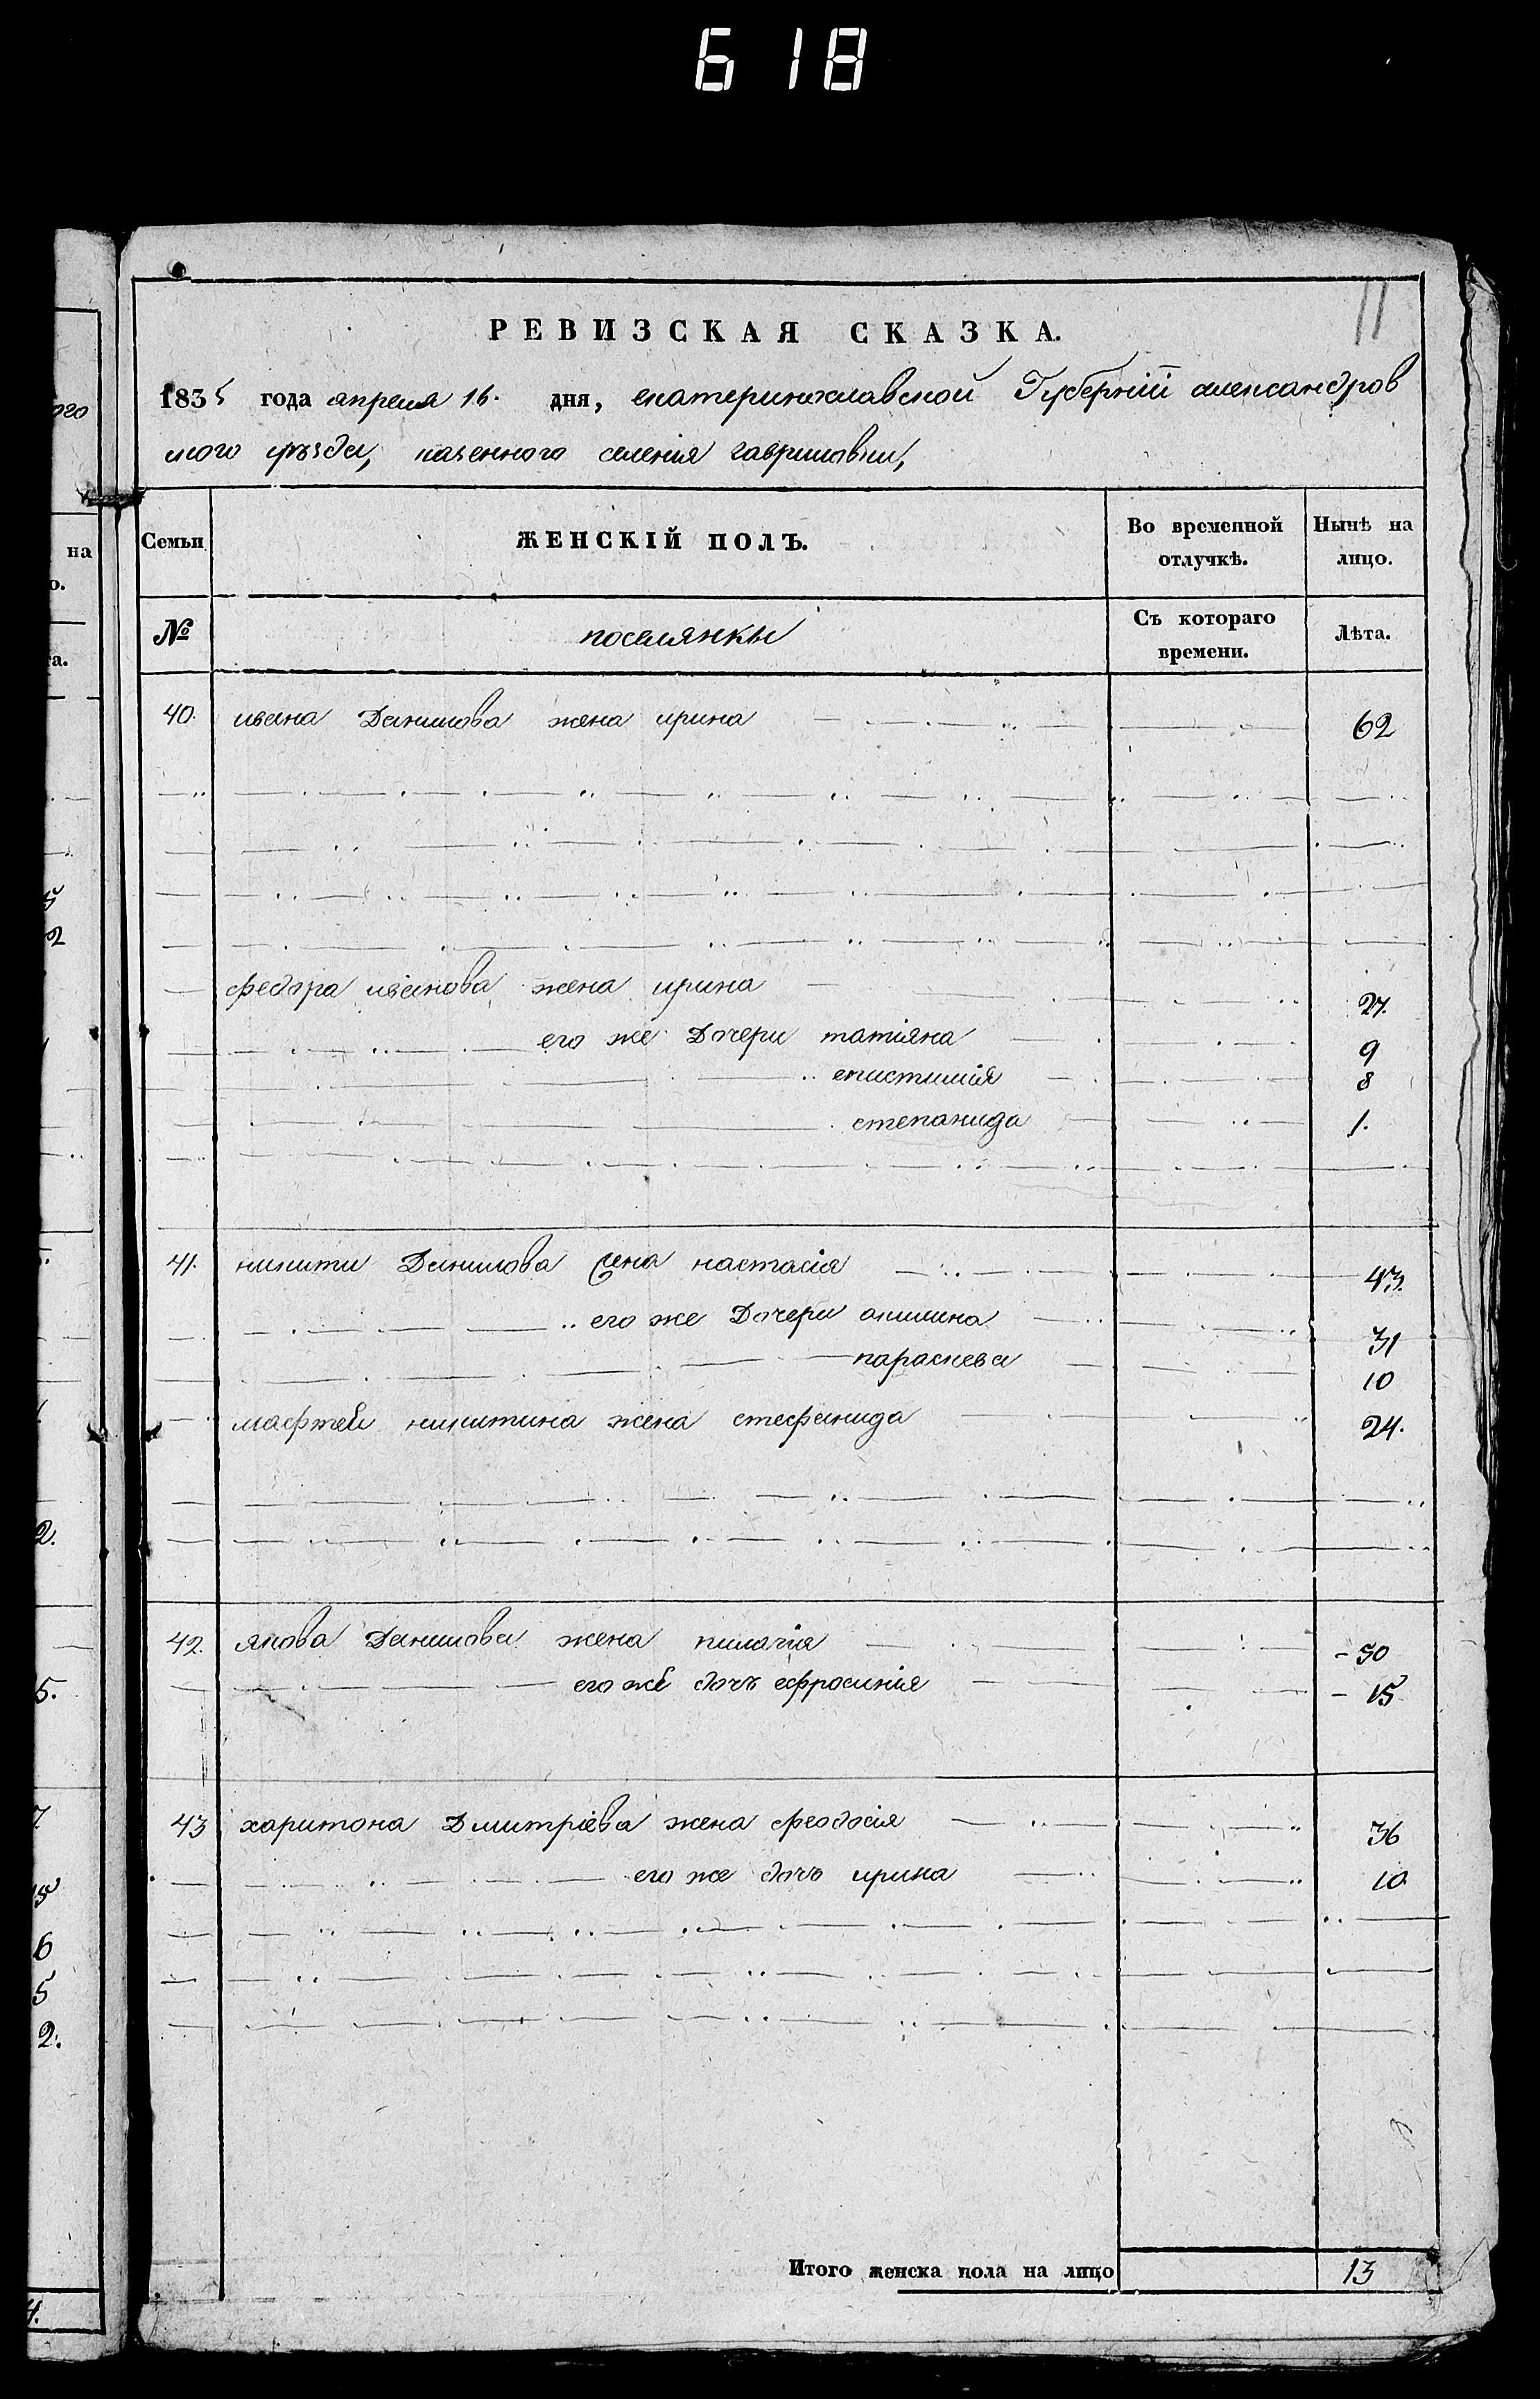 618
11
РЕВИЗСКАЯ СКАЗКА.
1835 года апреля 16. дня, екатеринославской Губерніи александров
ского уѣзда, казенного селенія гавриловки,
Семьи ЖЕНСКІЙ ПОЛЪ. Во временной отлучкѣ. Нынѣ на лицо.
№ поселянки Съ котораго времени. Лѣта.
40. ивана Данилова жена ирина 62
федора иванова жена ирина 27.
его же Дочери татіяна 9
епистимія 8
степанида 1.
41. никити Данилова жена настасія 43.
его же Дочери акилина 31
параскева 10
мафтея никитина жена стефанида 24.
42. якова Данилова жена пилагія 50
его же дочь ефросинія 15
43 харитона Дмитріева жена феодосія 36
его же дочь ирина 10.
Итого женска пола на лицо 13